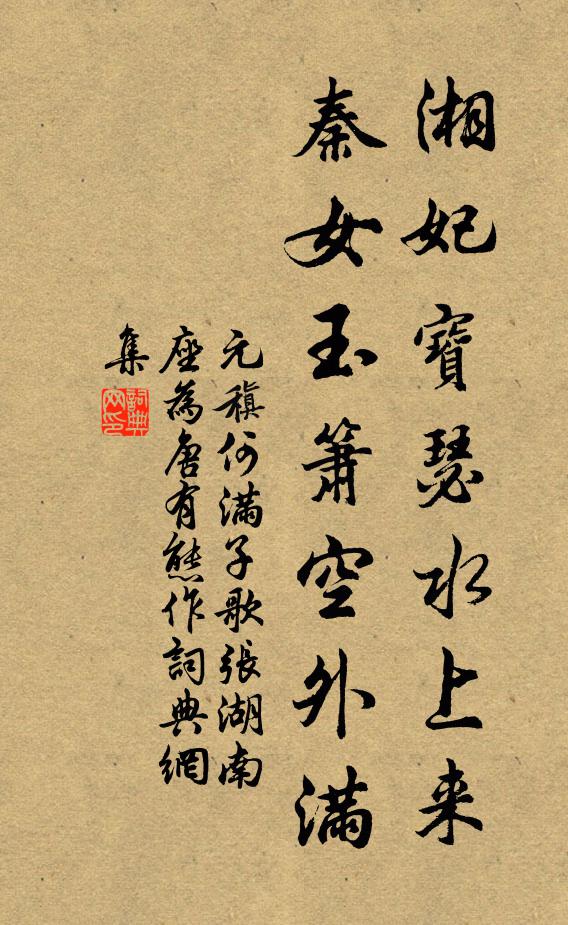 湘妃寶瑟水上来
秦女玉簫空外滿
元稹何滿子歌張湖南
座為唐有態作詞典網
集
詞典
网印